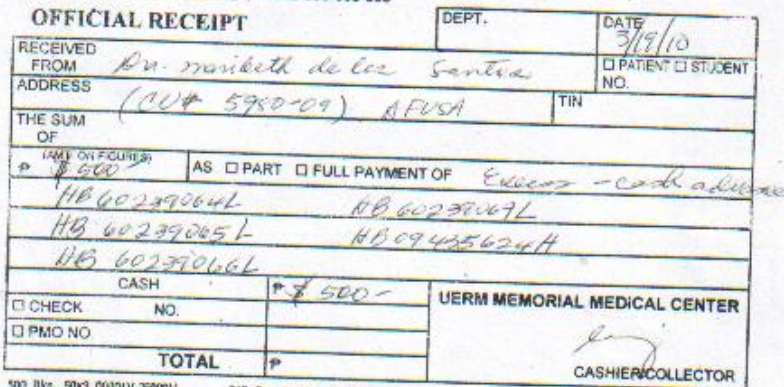 OFFICIAL RECEIPT
DEPT.
DATE 3/19/10
RECEIVED FROM Dr. maribeth de los Santos
☐ PATIENT ☐ STUDENT NO.
ADDRESS (CV# 5980-09) AFUSA
TIN
THE SUM OF
(AMT ON FIGURES)
₱ $ 500- AS ☐ PART ☐ FULL PAYMENT OF Excess - cash advance
HB 60239064L HB 60239067L
HB 60239065L HB 09435624H
HB 60239066L
CASH ₱ $ 500-
☐ CHECK NO.
☐ PMO NO
TOTAL ₱
UERM MEMORIAL MEDICAL CENTER
CASHIER/COLLECTOR